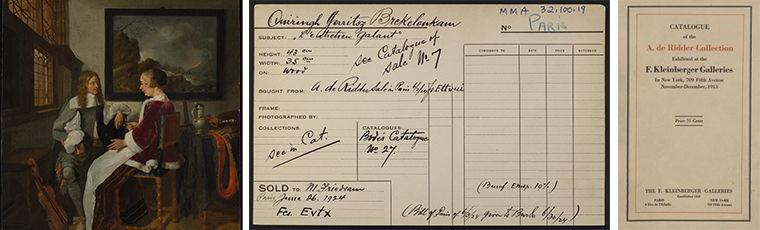 Quiringh Gerritsz Brekelenkam
MMA 32.100.19
No PARIS
SUBJECT: "L'Entretien Galant"
HEIGHT: 43 cm
WIDTH: 35 cm
ON: Wood
see Catalogue of
sale No 7
BOUGHT FROM: A. de Ridder sale in Paris
FRAME:
PHOTOGRAPHED BY:
COLLECTIONS.
see in Cat.
CATALOGUES:
Bode's Catalogue
No 27.
CONSIGNED TO DATE PRICE RETURNED
SOLD TO: M. Friedsam
Paris June 26. 1924
Fci. Evtx
(Benef. Emp. 10%)
(Bill of Paris of 6/2/24 given to Bache 6/30/24)
CATALOGUE
of the
A. de Ridder Collection
Exhibited at the
F. Kleinberger Galleries
In New York, 709 Fifth Avenue
November-December, 1913
Price 75 Cents
THE F. KLEINBERGER GALLERIES
Established 1848
PARIS NEW YORK
9 Rue de l'Echelle 709 Fifth Avenue